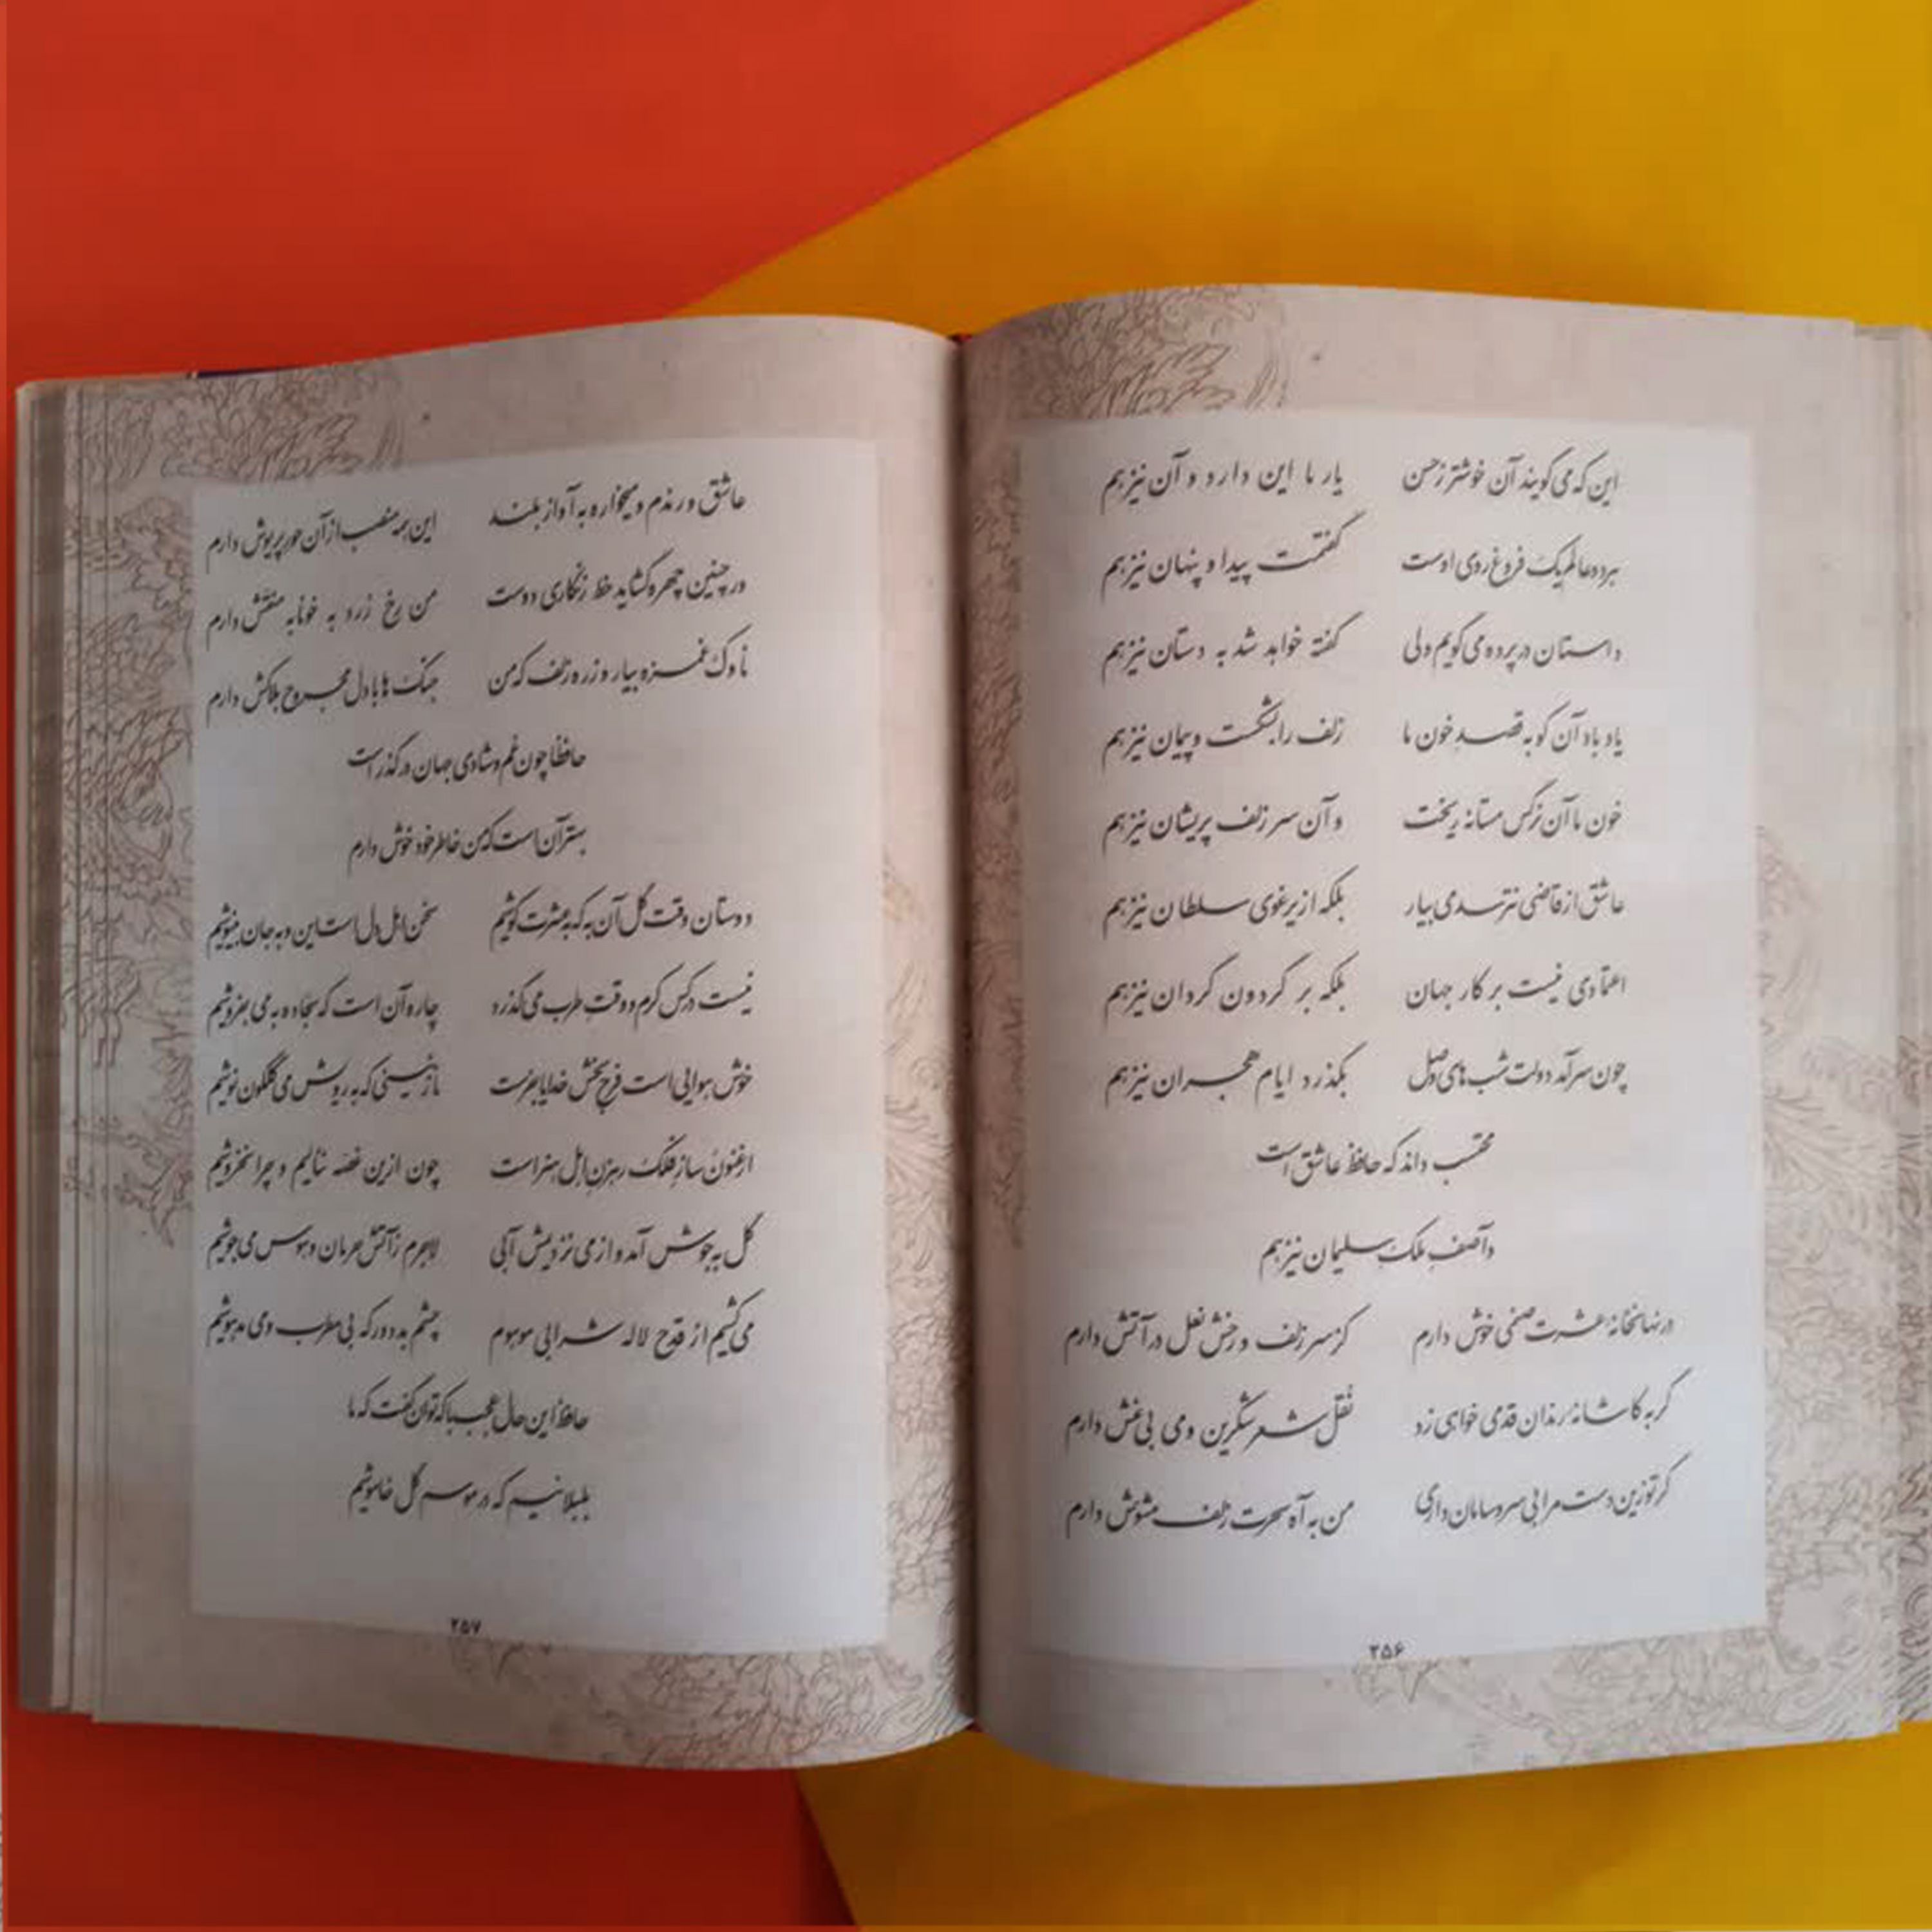 این که می گویند آن خوشتر ز حسن    یار ما این دارد و آن نیز هم
هر دو عالم یک فروغ روی اوست    گفتمت پیدا و پنهان نیز هم
داستان در پرده می گویم ولی    گفته خواهد شد به دستان نیز هم
یاد باد آن کو به قصد خون ما    زلف را بشکست و پیمان نیز هم
خون ما آن نرگس مستانه ریخت    و آن سر زلف پریشان نیز هم
عاشق از قاضی نترسد می بیار    بلکه از یرغوی سلطان نیز هم
اعتمادی نیست بر کار جهان    بلکه بر گردون گردان نیز هم
چون سر آمد دولت شب های وصل    بگذرد ایام هجران نیز هم
محتسب داند که حافظ عاشق است
و آصف ملک سلیمان نیز هم
در نهانخانه عشرت صنمی خوش دارم    کز سر زلف و رخش نعل در آتش دارم
گر به کاشانه رندان قدمی خواهی زد    نقل شعر شکرین و می بی غش دارم
گر تو زین دست مرا بی سر و سامان داری    من به آه سحرت زلف مشوش دارم
۲۵۶
عاشق و رندم و میخواره به آواز بلند    این همه منصب از آن حور پریوش دارم
در چنین چهره گشاید خط زنگاری دوست    من رخ زرد به خونابه منقش دارم
ناوک غمزه بیار و زره زلف که من    جنگ ها با دل مجروح بلاکش دارم
حافظا چون غم و شادی جهان در گذر است
بهتر آن است که من خاطر خود خوش دارم
دوستان وقت گل آن به که به عشرت کوشیم    سخن اهل دل است این و به جان بنیوشیم
نیست در کس کرم و وقت طرب می گذرد    چاره آن است که سجاده به می بفروشیم
خوش هوایی است فرح بخش خدایا بفرست    نازنینی که به رویش می گلگون نوشیم
ارغنون ساز فلک رهزن اهل هنر است    چون ازین غصه ننالیم و چرا نخروشیم
گل به جوش آمد و از می نزدیمش آبی    لاجرم ز آتش حرمان و هوس می جوشیم
می کشیم از قدح لاله شرابی موهوم    چشم بد دور که بی مطرب و می مدهوشیم
حافظ این حال عجب با که توان گفت که ما
بلبلانیم که در موسم گل خاموشیم
۲۵۷